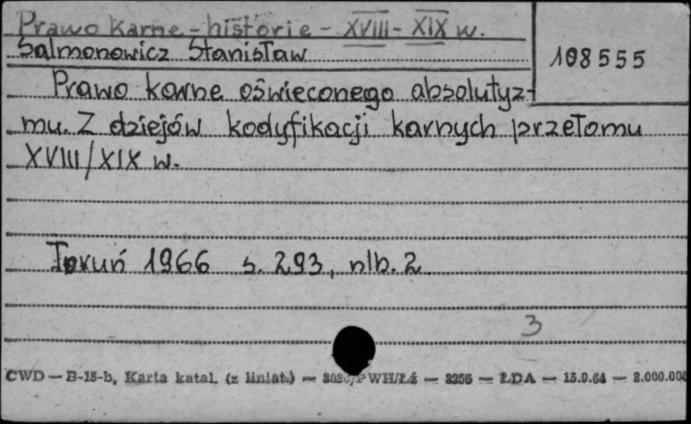 Prawo Karne - historie - XVIII - XIX w.
Salmonowicz Stanisław
108555
Prawo karne oświeconego absolutyz-
mu. Z dziejów kodyfikacji karnych przełomu
XVIII/XIX w.
Toruń 1966 s. 293, nlb. 2
3
CWD — B-15-b, Karta katal. (z liniat.) — PWH/Łż — 3256 — ŁDA — 15.9.64 — 2.000.000